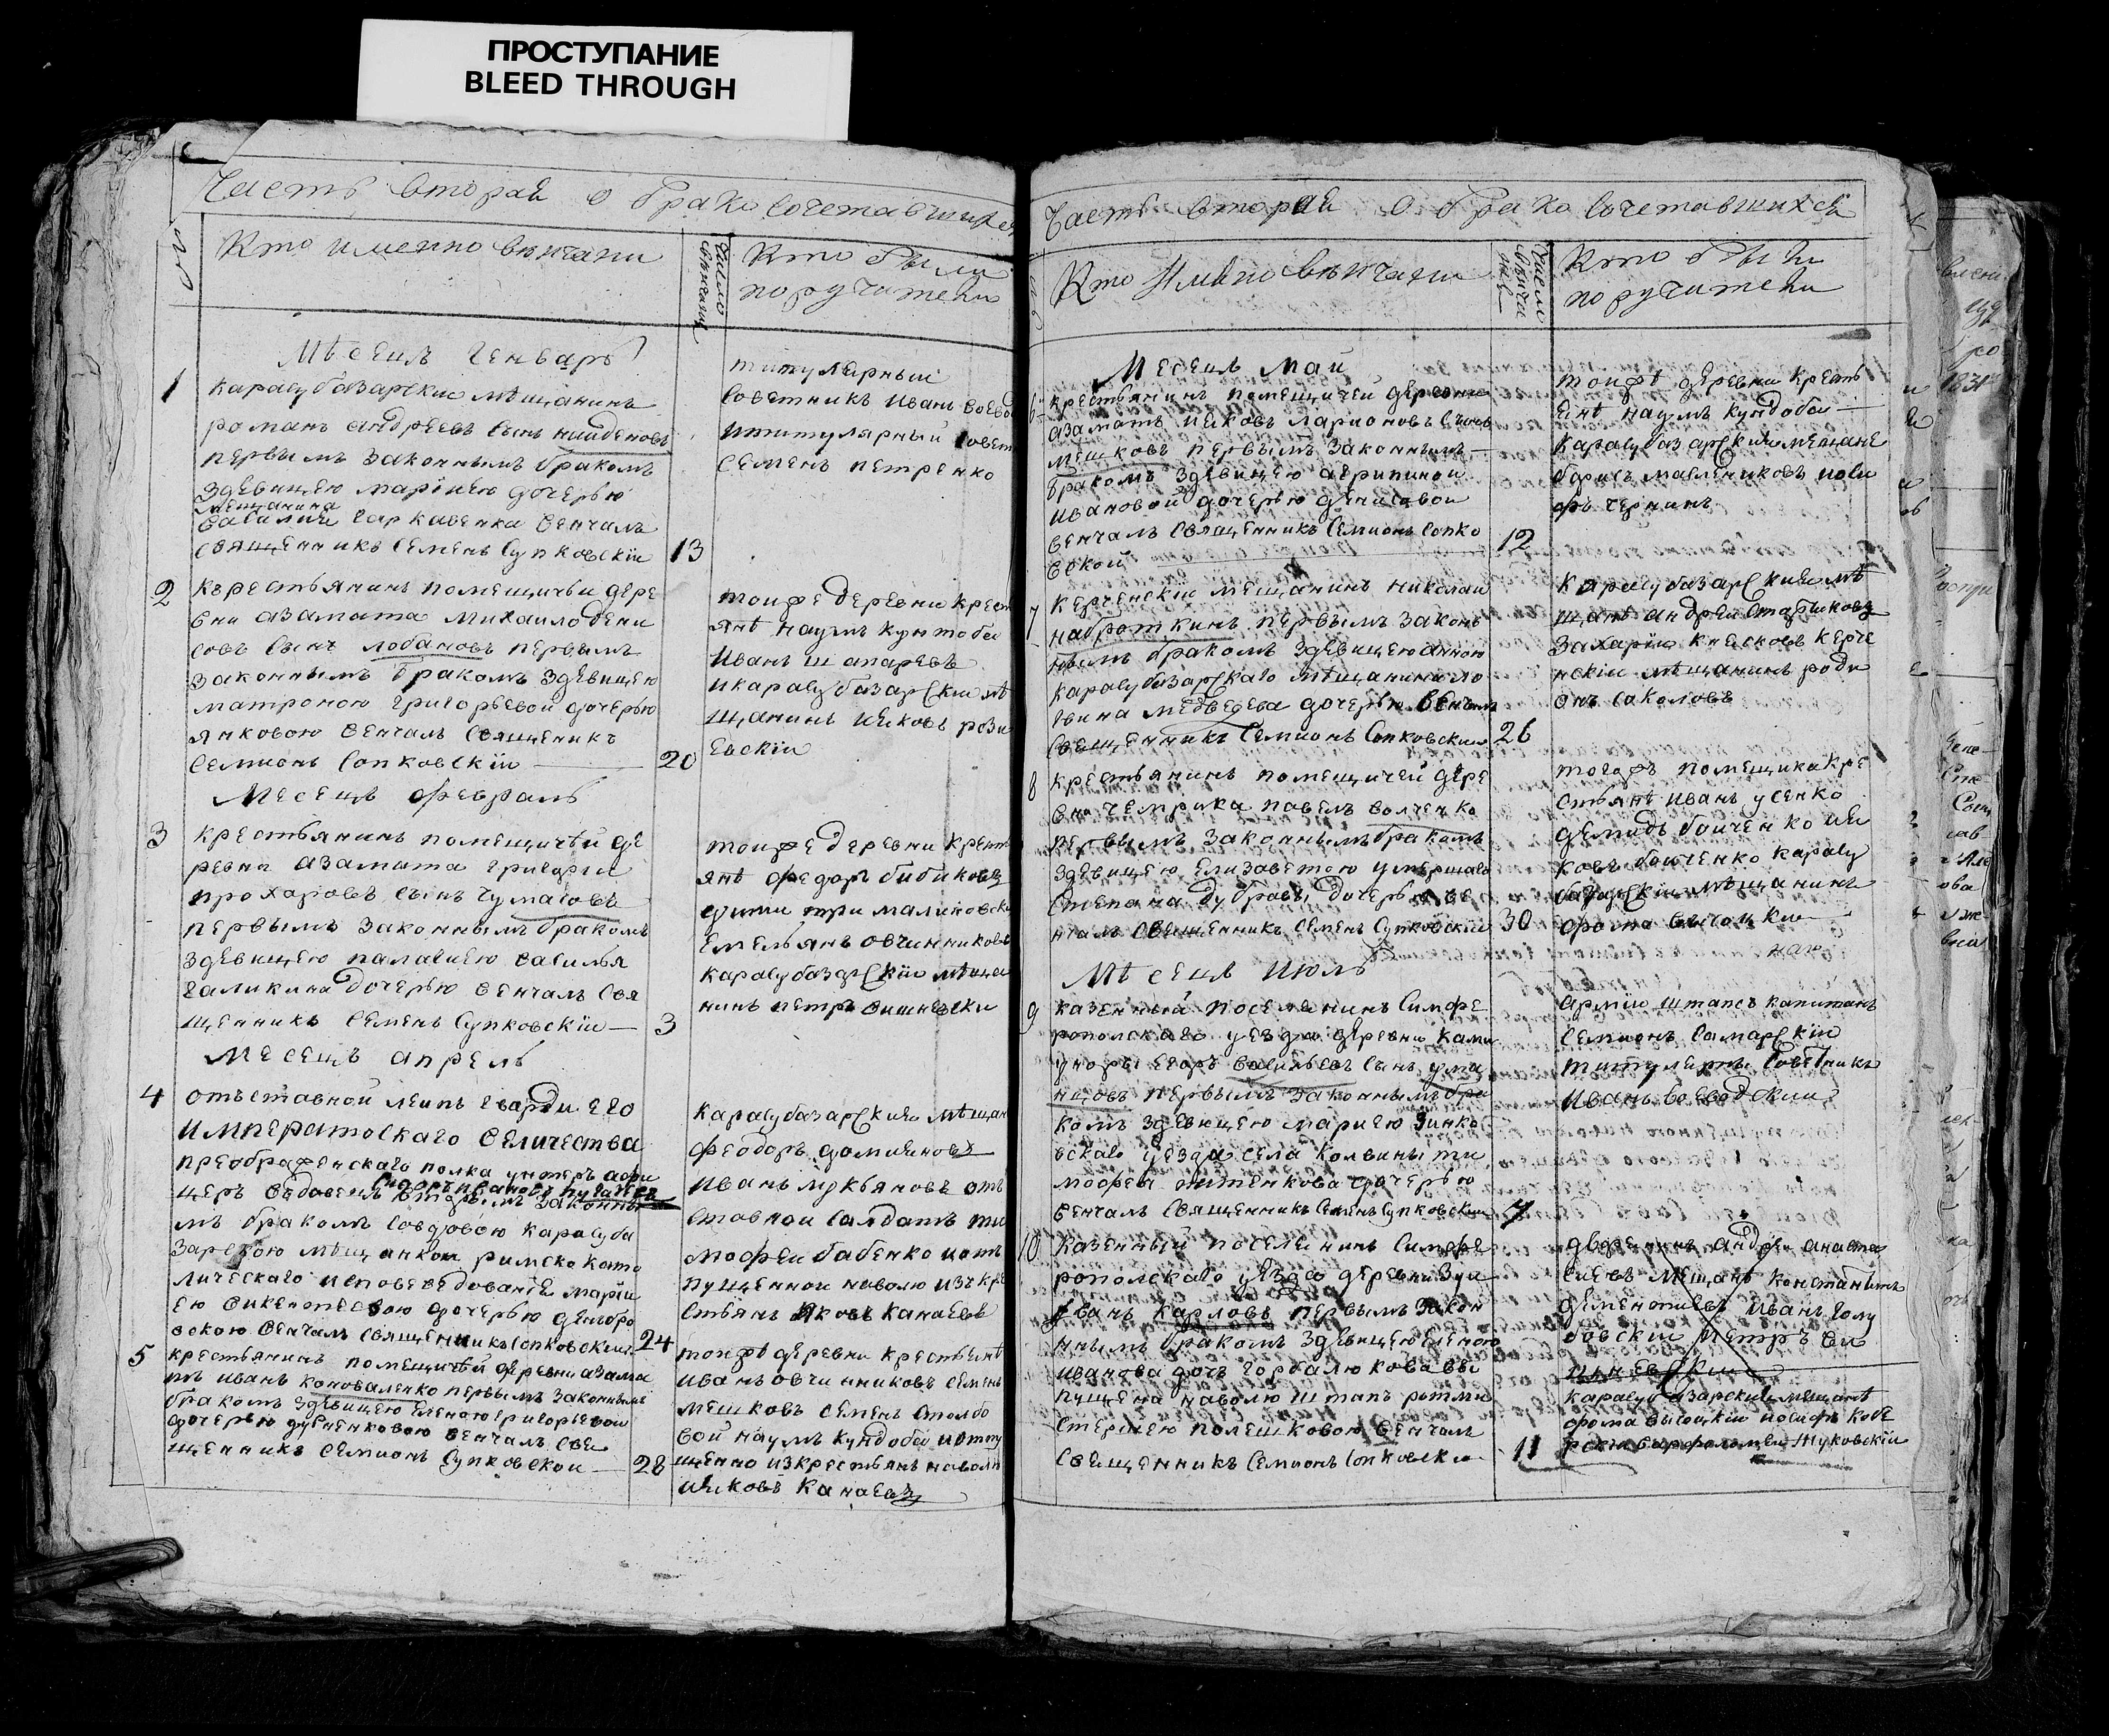 ПРОСТУПАНИЕ
BLEED THROUGH
Часть вторая о бракосочетавшихся
№
Кто именно венчани
Число венчания
Кто были
поручители
Мѣсецъ Генварь
1
карасубазарски мѣщанинъ
романъ андреевъ сынъ найденовъ
первымъ законнымъ бракомъ
здевицею марiиею дочерью
мещанина
василия гаркавенка венчалъ
священникъ семенъ Супковскiи
13
титулярный
советникъ иванъ воевод
ититулярный совет
семенъ петренко
2
кърестьянинъ помещичьи дере
вни азамата михаило дени
совъ сынъ лобановъ первымъ
законнымъ бракомъ здевицею
матроною григорьевой дочерью
янковою венчалъ священикъ
семионъ сопковскiи
20
тоиже деревни крест
янѣ наумъ кунтобеи
иванъ шапаревъ
икарасубазарскiи мѣ
щанинъ ияковъ рози
евскiи
Месецъ февраль
3
крестьянинъ помещичьи де
ревни азамата григории
прохаровъ сынъ чумаговъ
первымъ законнымъ бракомъ
здевицею палагиею василья
галикина дочерью венчалъ свя
щенникъ семенъ Супковскiи
3
тоиже деревни крест
янѣ федоръ бибиковъ
дими три малиновски
емельянъ овчинниковъ
карасубазарскiи мѣща
нинъ петръ вишневски
Месецъ апрель
4
отъставной леипъ гварди его
императоскаго величества
преображенскаго полка унтеръ афи
церъ вѣдовецъ вторымъ законны
мъ бракомъ совдовою карасуба
зарскою мѣщанкои римско като
лическаго исповеведование марии
ею викентевою дочерью
венчалъ священникъ сопковскии
24
карасубазарскию мѣщан
феодоръ домияновъ
иванъ лукьяновъ отъ
ставнои салдатъ ти
мофеи бабенко иотъ
пущеннои наволю изъ кре
стьянъ яковъ канаевъ
5
крестьянинъ помещичьи деревни азама
тъ иванъ коноваленко первымъ законнымъ
бракомъ здевицею еленою григорьевои
дочерью дубненковою венчалъ свя
щенникъ семионъ Супковскои
28
тоижѣ деревни крестьянѣ
иванъ овчинниковъ семенъ
мешковъ семенъ столбо
вой наумъ кундобеи иотпу
щенно изкрестьянъ наволю
ияковъ канаевъ
Часть вторая о бракосочетавшихся
Кто имѣно вѣнчани
Число венчания
Кто были
поручители
Месецъ май
6
крестьянинъ помещичей деревни
азаматъ ияковъ ларионовъ сынъ
мешковъ первымъ законнымъ
бракомъ здевицею агрипиной
ивановой дочерью денисовои
венчалъ священникъ семионъ сопко
вскои
12
тоижѣ деревни крестъ
янѣ наумъ кундобеи
карасубазарскихъ мещане
борисъ маслениковъ иоси
фъ чернинъ
7
керченскiи мещанинъ николаи
наброткинъ первымъ закон
нымъ бракомъ здевицею анною
карасубазарскаго мѣщанина ло
гвина медведева дочерью венчалъ
священникъ семионъ сопковскии
26
карасубазарския мѣ
щанѣ андреи стариковъ
захарiи княсковъ керче
нскiи мѣщанинъ роди
онъ саколовъ
8
крестьянинъ помещичей дере
вни чемрика павелъ волченко
первымъ законнымъ бракомъ
здевицею елизаветою умершаго
степана дубравы дочерью ве
нчалъ священникъ семенъ Супковскiи
30
тогожъ помещика кре
стьянѣ иванъ усенко
демидъ боиченко ия
ковъ боиченко карасу
базарскiи мѣщанинъ
фома высоцки
Мѣсецъ июль
9
казенный поселянинъ Симфе
ропольскаго уезда деревни
егоръ васильевъ сынъ ума
нцовъ первымъ законнымъ бра
комъ здевицею мариею
вскаго уезда села
мофея питенкова дочерью
венчалъ священникъ семенъ Супковскии
7
армiи штапсъ капитанъ
семионъ самарскiи
титулярны советникъ
иванъ воеводскии
10
казенный поселянинъ симфе
ропольскаго уезда деревни Зуи
иванъ карловъ первымъ закон
нымъ бракомъ здевицею еленою
иванова дочъ горбалюкова вы
пущена наволю штапъ ротми
стершею полешковою венчалъ
священникъ семионъ сопковски
11
дверенинъ андреи анаста
сиевъ мещанѣ константинъ
дементиевъ иванъ голу
бовскiи петръ ви
шневскии
карасубазарские мещанѣ
фома высоцкiи иосифъ кобе
рски варфоломеи жуковскiи